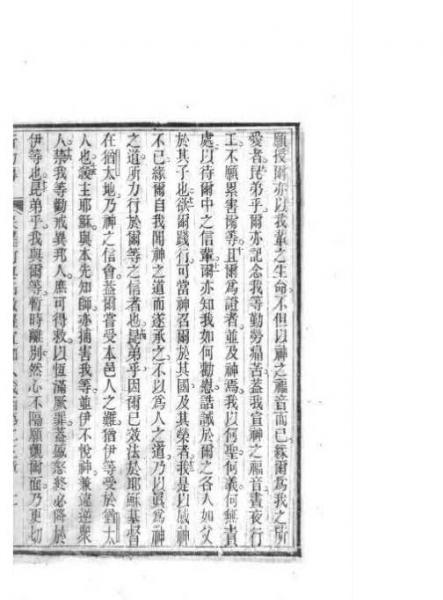 願授爾亦以我輩之生命不但以神之福音而已緣爾為我之所
愛者昆弟乎爾亦記念我等勤勞痛苦蓋我宣神之福音晝夜行
工不願累害爾等且爾為證者並及神焉我以何聖何義何無責
處以待爾中之信輩爾亦知我如何勸慰誥誡於爾之各人如父
於其子也欲爾踐行可當神召爾於其國及其榮者我是以感神
不已緣爾自我聞神之道而遂承之不以為人之道乃以真為神
之道所力行於爾等之信者也昆弟乎因爾已效法於耶穌基督
在猶太地乃神之信會蓋爾嘗受本邑人之難猶伊等受於猶太
人也殺主耶穌與本先知師亦捕害我等並伊不悅神兼違逆眾
人禁我等勸戒異邦人庶可得救以恆滿厥罪蓋慼怒終必降於
伊等也昆弟乎我與爾等暫時離別然心不隔願覿爾面乃更切